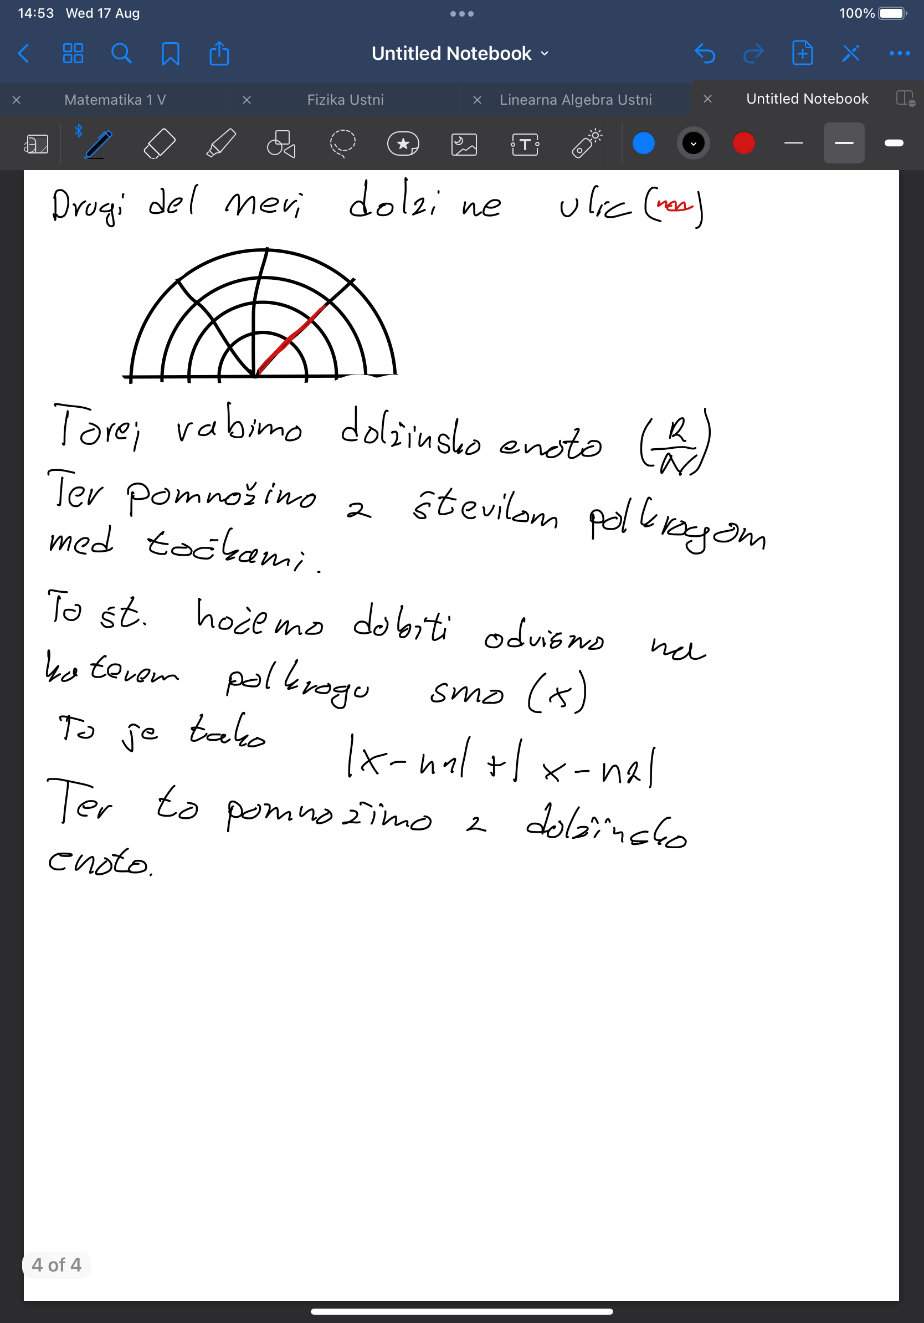 14:53 Wed 17 Aug
100%
Untitled Notebook
Matematika 1 V
Fizika Ustni
Linearna Algebra Ustni
Untitled Notebook
T
Drugi del meri dolzine ulic ( )
Torej rabimo dolžinsko enoto (R/N)
Ter pomnožimo z številom polkrogom
med točkami.
To št. hočemo dobiti odvisno na
katerem polkrogu smo (x)
To je tako |x-n1|+|x-n2|
Ter to pomnožimo z dolžinsko
enoto.
4 of 4